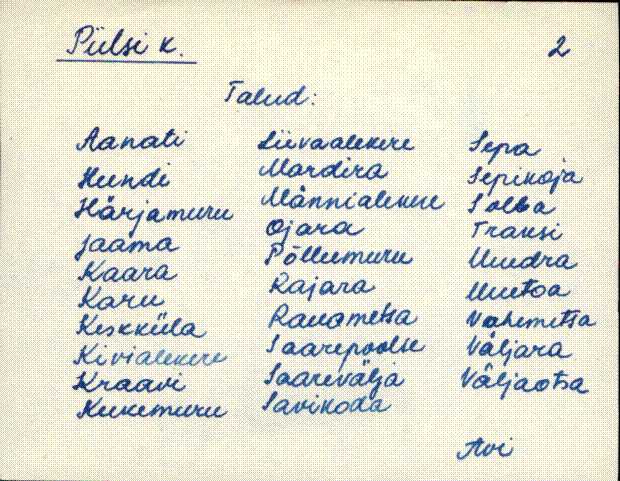 Piilsi k.
2
Talud:
Aanati
Hundi
Härjamuru
Jaama
Kaara
Karu
Keskküla
Kivialekere
Kraavi
Kukemuru
Liivaalekere
Mardira
Männialekere
Ojara
Põllumuru
Rajara
Rauametsa
Saarepoolse
Saarevälja
Savikoda
Sepa
Sepikoja
Solba
Traksi
Uudra
Uuetoa
Vahemetsa
Väljara
Väljaotsa
Avi